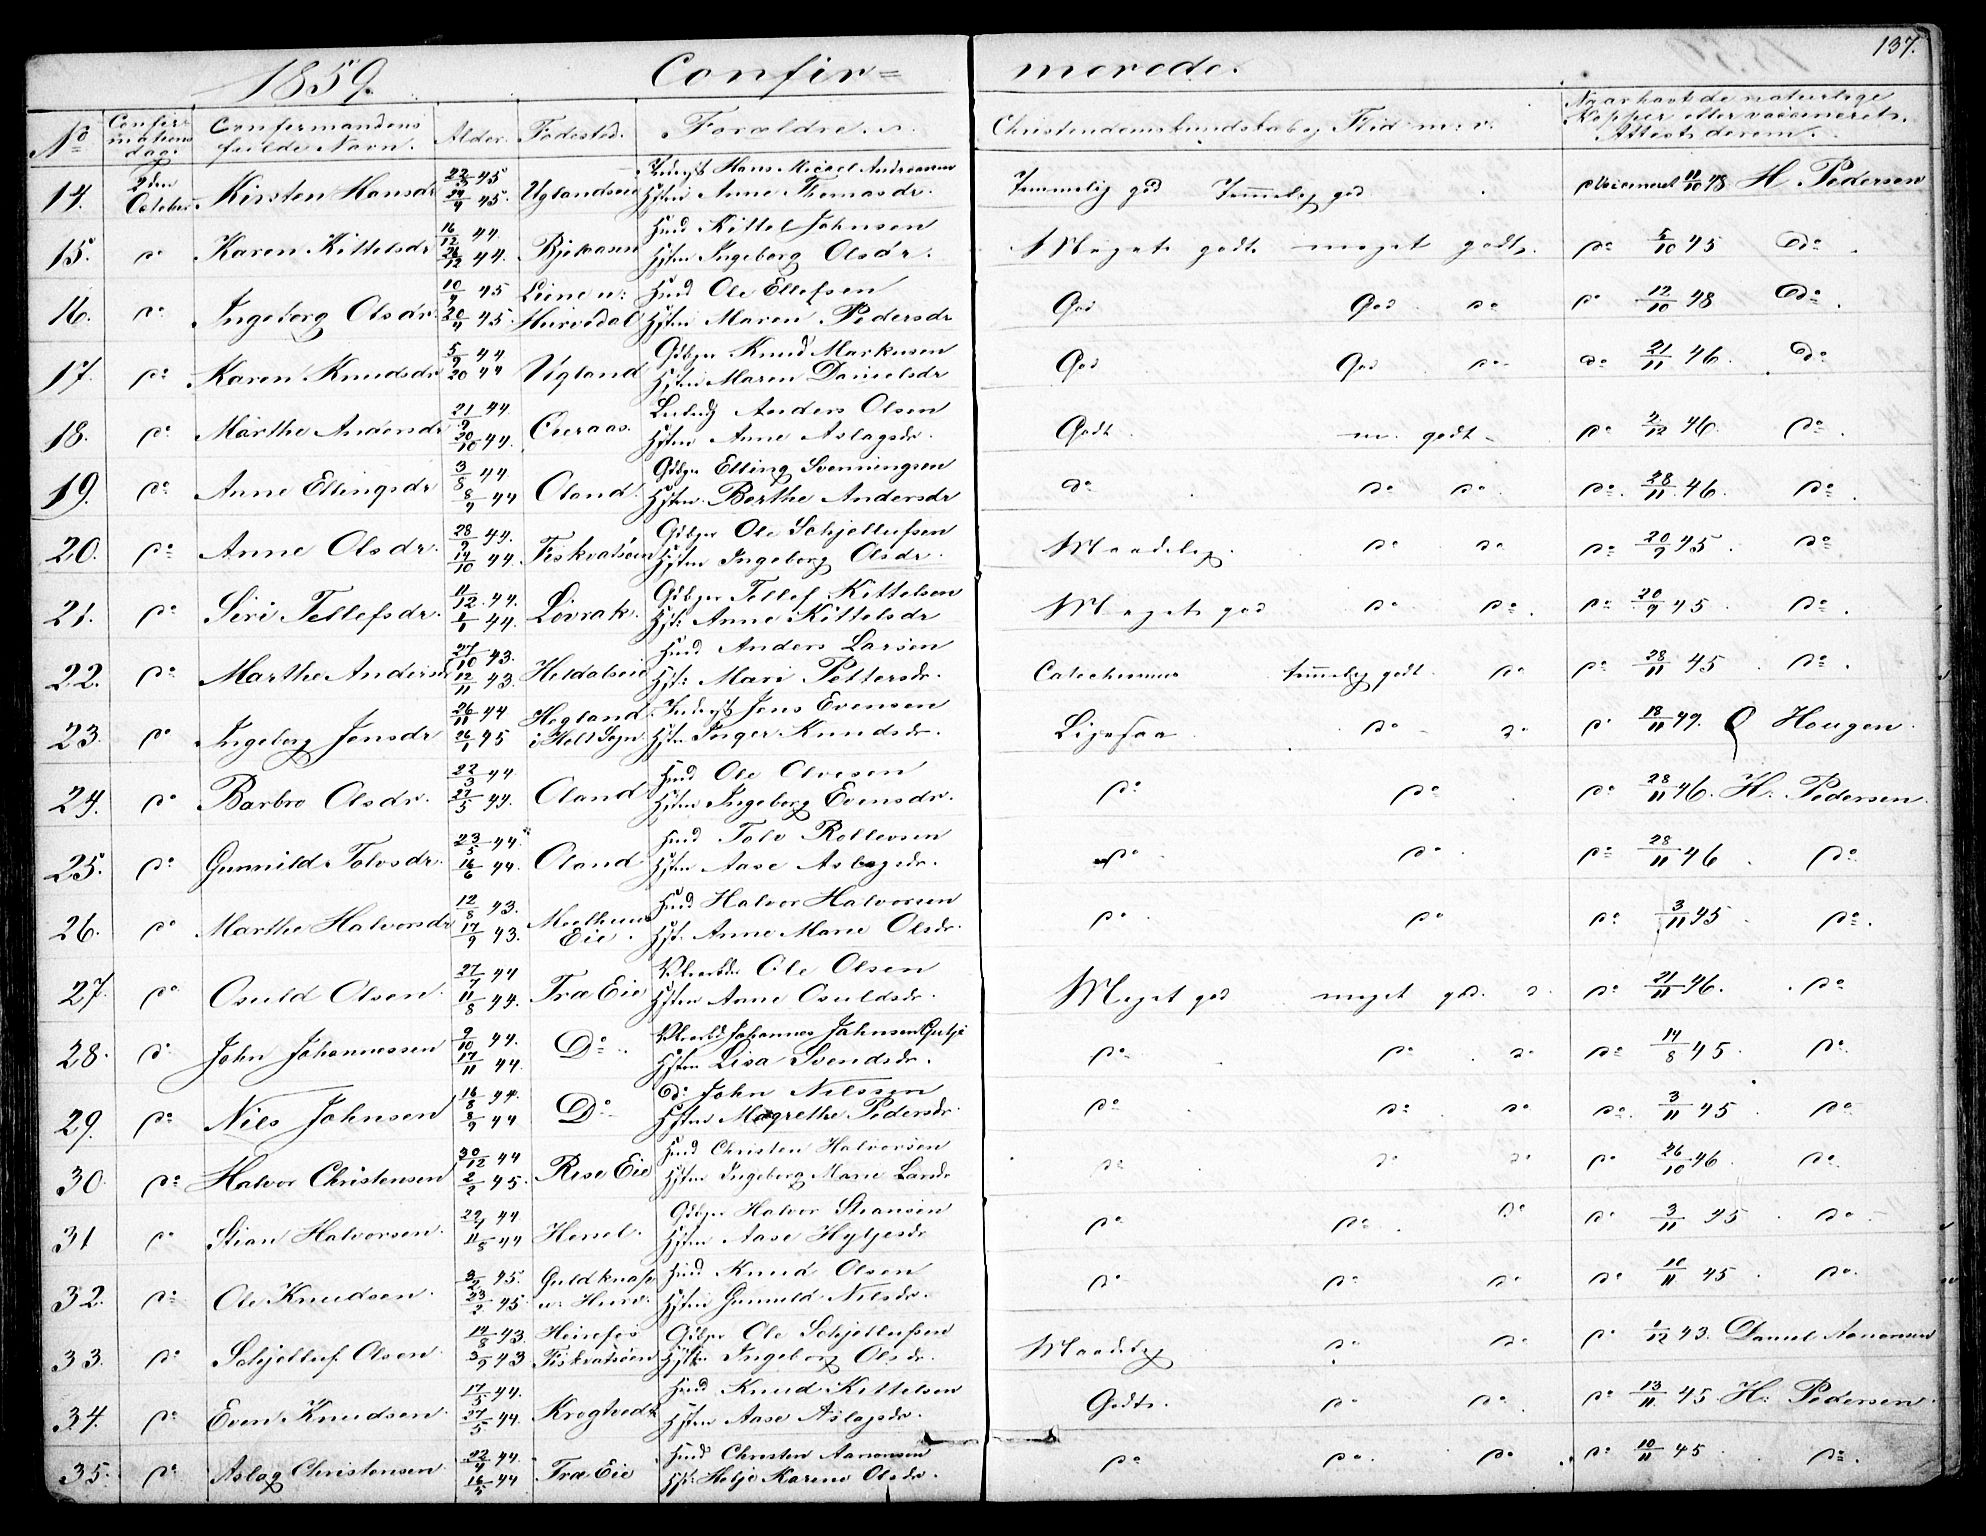 137.
1859. Confir= merede.
No Confir- mations dag Confirmandens fulde Navn. Alder. Fødested. Forældre. Christendomskundskab og Flid m. v. Naar havt de naturlige Kopper eller vaccineret, Attest derom.
14. 2den October Kirsten Hansdr 45 45. Hans Michael Andreassen Hstru Anne Thomasdr. Temmelig god Temmelig god vaccineret 11/10 48 H. Pedersen
15. do Karen Kittelsdr 16/12 44. 26/12 44. Husmd Kittel Johnsen Hstru Ingeborg Olsdr. Meget godt meget godt. do 5/10 45 Do
16. do Ingeborg Olsdr. 10/4 45 20/4 45. Liene u: Hurvedal Husmd Ole Ellefsen Hstru Maren Pedersdr God God do do 12/10 48 Do
17. do Karen Knudsdr 5/9 44 20 44 Vigland Gdbgr Knud Markusen Hstru Maren Danielsdr God God do do 21/11 46. Do
18. do Marthe Andersdr 21/9 44. 20/10 44. Anders Olsen Hstru Anne Aslagsdr. Godt m. godt do 2/12 46. do
19. do Anne Ellingsdr 3/8 44 8/9 44 Oland. Gdbgr Elling Svenningsen Hstru. Berthe Andersdr do do do do 28/11 46. do
20. do Anne Olsdr. 28/9 44. 14/10 44. Fiskvatsøen Gdbgr Ole Schjellufsen Hstru Ingeborg Olsdr. Maadelig. do do do 20/9 45. do
21. do Siri Tellefsdr. 11/12 44. 1/1 44. Lövrak. Gdbgr Tellef Kittelsen Hst: Anne Kittelsdr Meget god do do do 20/9 45 do
22. do Marthe Andersdr 27/10 43. 12/11 43. Heldalseie Husmd Anders Larsen Hst: Mari Pettersdr. temmelig godt do do 28/11 45. do
23. do Ingeborg Jensdr 26/11 44 26/1 45 Hogland i Holt Sogn Jens Evensen Hstru Inger Knudsdr. Ligesaa do do do 18/11 49. O Hougen.
24. do Barbro Olsdr. 22/3 44 27/5 44. Oland Husmd Ole Olvesen Hstru Ingeborg Evensdr. do do do 28/11 46. H. Pedersen.
25. do Gunnild Tolvsdr. 23/5 44. 16/6 44. Oland Husmd Tolv Rollevsen Hstru Aase Aslagsdr. do do do 28/11 46 do
26. do Marthe Halvorsdr 12/8 43. 17/9 43. Eie. Husmd Halvor Halvorsen Hst. Anne Marie Olsdr. do do do 3/11 45 do
27. do Osuld Olsen. 27/7 44 11/8 44. Træ Eie Ole Olsen Hstru Anne Osuldsdr. Meget god meget god. do do 21/11 46. do
28. do John Johannessen 9/10 44. 17/11 44. Do Johannes Johnsen Hstru Lisa Svendsdr. do do do do 14/8 45. do
29. do Nils Johnsen 16/8 44. 8/9 44 Do do John Nilssen Hstru Magrethe Pedersdr. do do do do 3/11 45 do
30. do Halvor Christensen 30/12 44 2/2 45. Rise Eie Husmd Christen Halvorsen Hstru Ingeborg Marie Larsdr do do do do 26/10 46 do
31 do Stian Halvorsen. 44. 11/8 44 Henel. Gdbgr Halvor Stiansen Hstru Aase Hyljesdr do do do do 3/11 45 do
32. do Ole Knudsen. 45. 23/2 45 Guldknap u: Hurv: Husmd Knud Olsen Hstru Gunnuld Nilsdr. do do do do 10/11 45 do
33. do Schjelluf Olsen. 14/8 43. 3/9 43 Heirefos Fiskvatsøen Gdbgr Ole Schjellufsen Hstru Ingeborg Olsdr. Maadelig do do do 1/12 43. Daniel Aanonsen
34. do Even Knudsen. 17/5 44. 27/5 44. Krogtvedt Husmd Knud Kittelsen Hstru Aase Aslagsdr. Godt. do do do 13/11 45 H. Pedersen.
35. do Aslag Christensen 22/4 44. 16/5 44 Træ Eie Husmd Christen Aanonsen Hst: Helje Karine Olsdr. do do do do 10/11 45 do